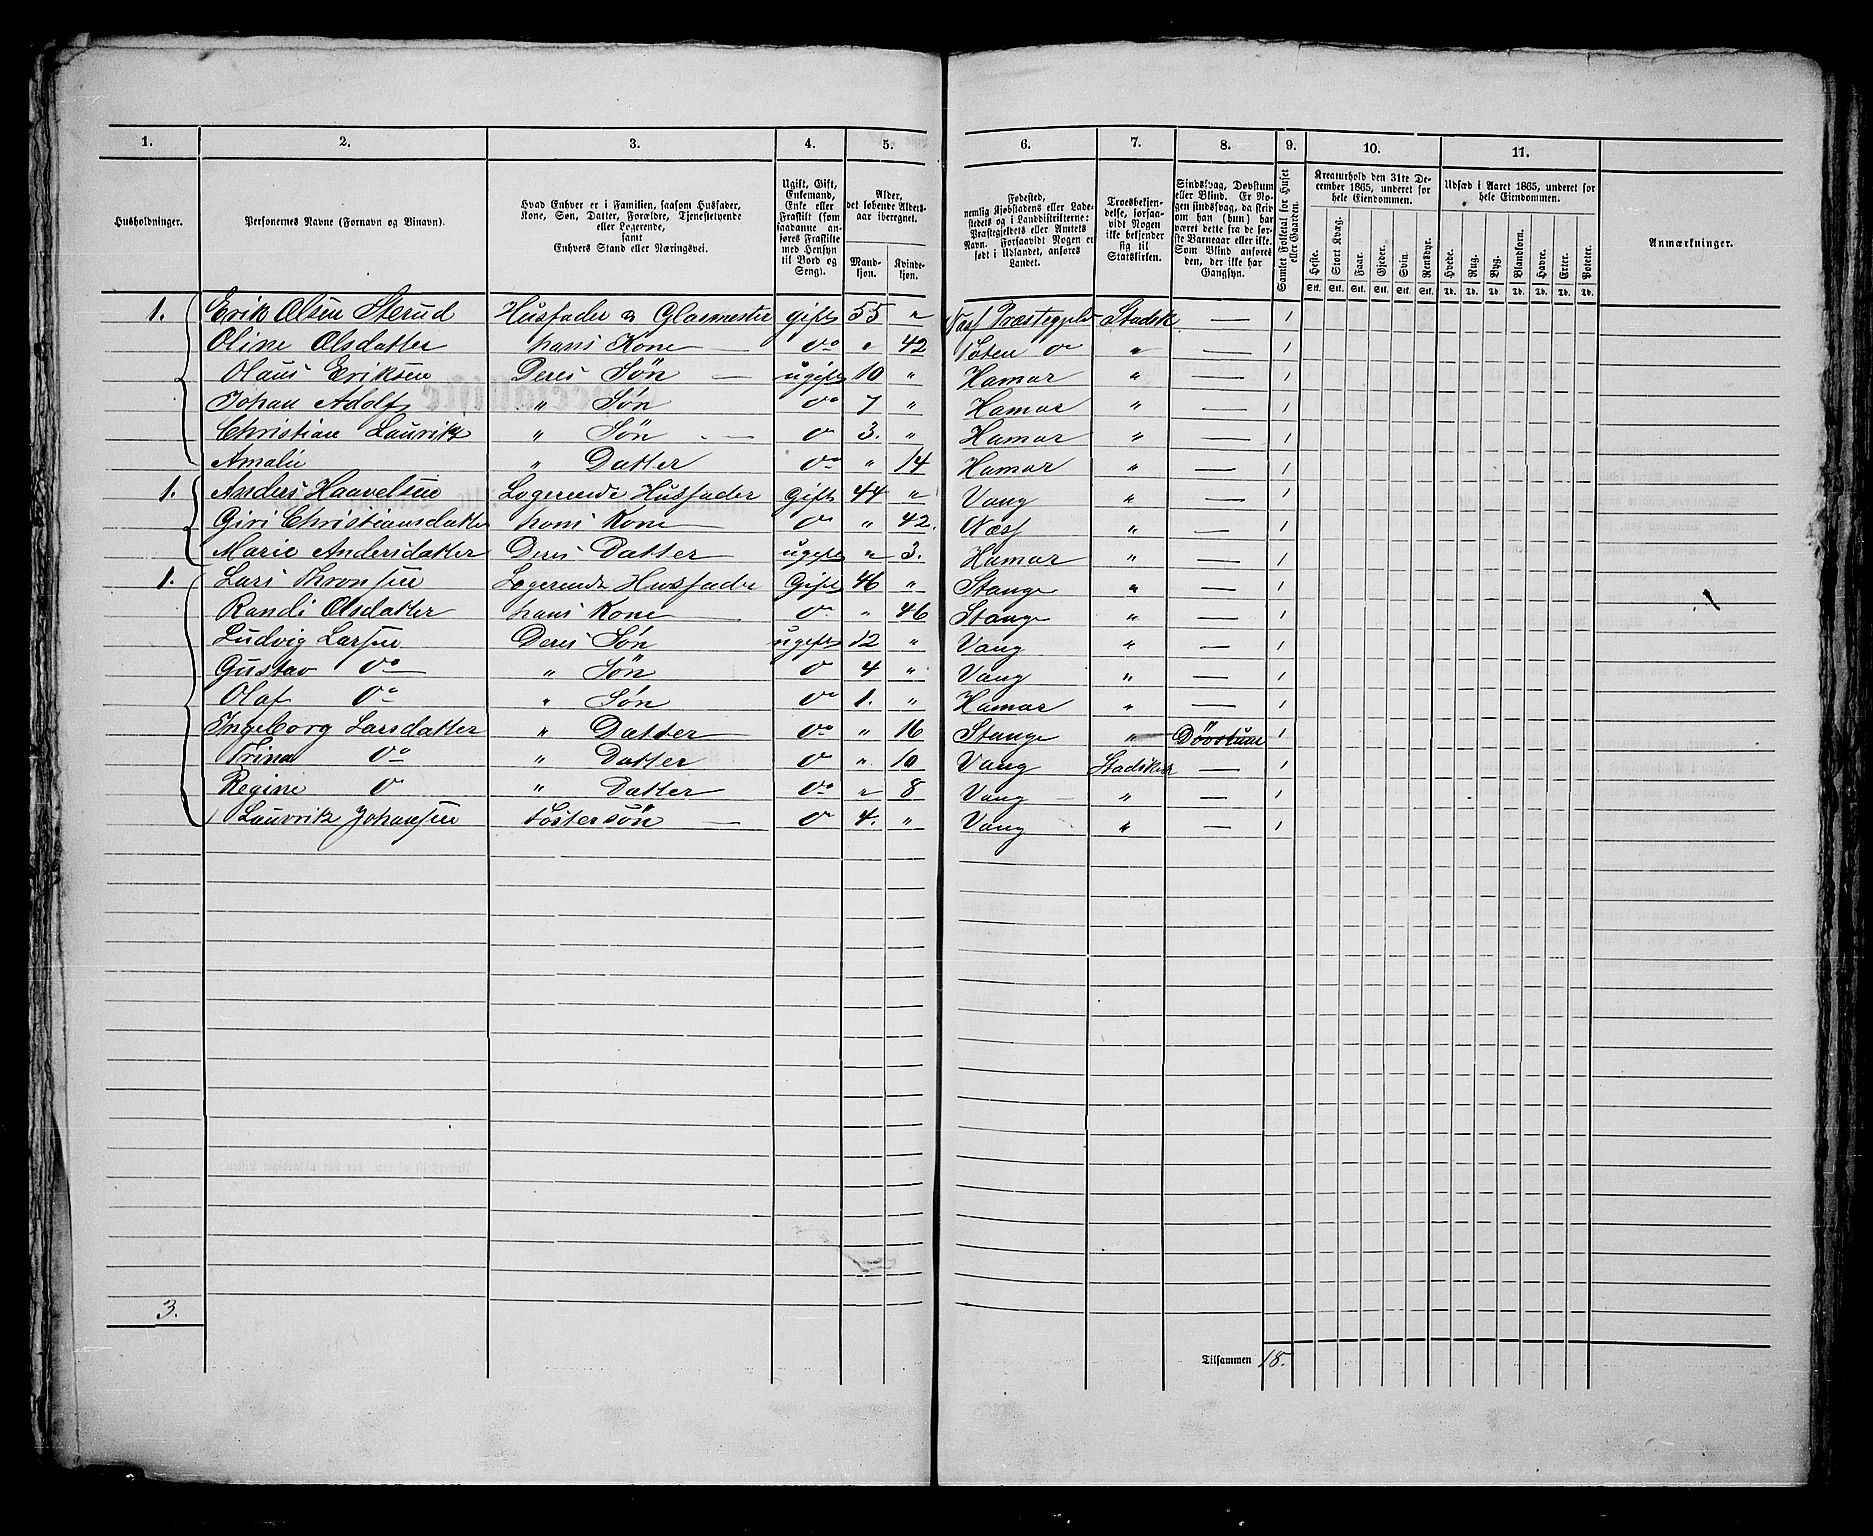 1. 2. 3. 4. 5. 6. 7. 8. 9. 10. 11.
Husholdninger.
Personernes Navne (Fornavn og Binavn).
Hvad Enhver er i Familien, saasom Husfader,
Kone, Søn, Datter, Forældre, Tjenestetyende
eller Logerende,
samt
Enhvers Stand eller Næringsvei.
Ugift, Gift,
Enkemand,
Enke eller
Fraskilt (som
saadanne an-
føres Fraskilte
med Hensyn
til Bord og
Seng).
Alder,
det løbende Alders-
aar iberegnet.
Mand-
kjøn.
Kvinde-
kjøn.
Fødested,
nemlig Kjøbstadens eller Lade-
stedets og i Landdistrikterne:
Præstegjeldets eller Amtets
Navn. Forsaavidt Nogen er
født i Udlandet, anføres
Landet.
Troesbekjen-
delse, forsaa-
vidt Nogen
ikke bekjender
sig til
Statskirken.
Sindssvag, Døvstum
eller Blind. Er No-
gen sindssvag, da skriv
om han (hun) har
været dette fra de før-
ste Barneaar eller ikke.
Som Blind anføres
den, der ikke har
Gangsyn.
Samlet Folketal for Huset
eller Gaarden.
Kreaturhold den 31te De-
cember 1865, underet for
hele Eiendommen.
Heste. Stort Kvæg. Faar. Gjeder. Svin. Rensdyr.
Stk. Stk. Stk. Stk. Stk. Stk.
Udsæd i Aaret 1865, underet for
hele Eiendommen.
Hvede. Rug. Byg. Blandkorn. Havre. Erter. Poteter.
Td. Td. Td. Td. Td. Td. Td.
Anmærkninger.
1. Erik Olsen Sterud Husfader & Glasmester gift 55 " Næs Præstegjeld Statsk — 1
Oline Olsdatter hans Kone — Do " 42 Toten Do " — 1
Olaus Eriksen Deres Søn — ugift 10 " Hamar " — 1
Johan Adolf " Søn Do 7 " Hamar " — 1
Christian Lauritz " Søn — Do 3. " Hamar " — 1
Amalie " Datter Do " 14 Hamar " — 1
1. Anders Haavelsen Logerende Husfader Gift 44 " Vang " — 1
Giri Christiansdatter hans Kone — Do " 42. Næss " — 1
Marie Andersdatter Deres Datter ugift " 3. Hamar " — 1
1. Lars Thronsen Logerende Husfader Gift 46 " Stange " — 1
Randi Olsdatter hans Kone Do " 46 Stange " — 1
Ludvig Larsen Deres Søn ugift 12 " Vang " — 1
Gustav Do " Søn Do 4 " Vang " — 1
Olaf Do " Søn Do 1. " Hamar " — 1
Ingeborg Larsdatter " Datter Do " 16 Stange " Døvstum 1
Trina Do " Datter Do " 10 Vang Statskirk — 1
Regine Do " Datter Do " 8 Vang " — 1
Lauvritz Johansen Fostersøn — Do 4. " Vang " — 1
3.
Tilsammen 18.